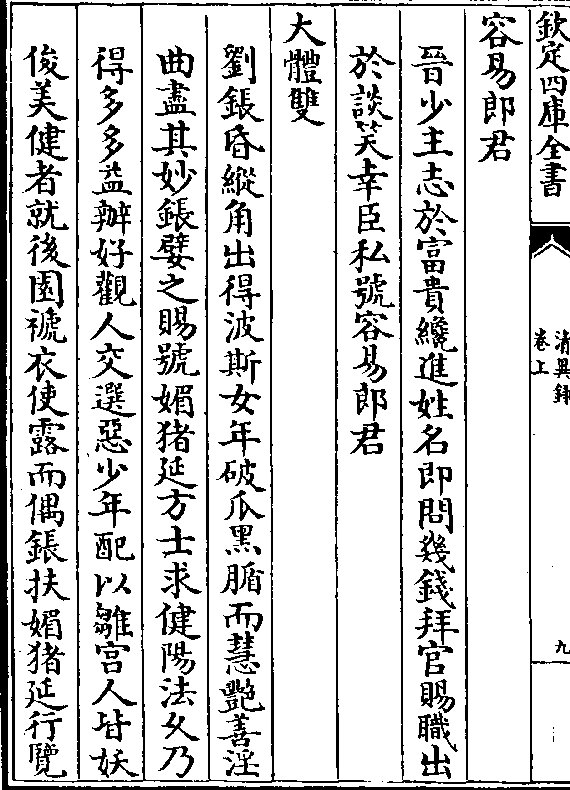 欽定四庫全書
清異錄
卷上
九
容易郎君
晉少主志於富貴纔進姓名即問幾錢拜官賜職出
於談笑幸臣私號容易郎君
大體雙
劉鋹昏縱角出得波斯女年破瓜黑腯而慧艷善淫
曲盡其妙鋹嬖之賜號媚猪延方士求健陽法久乃
得多多益辦好觀人交選惡少年配以雛宫人皆妖
俊美健者就後園褫衣使露而偶鋹扶媚猪延行覽